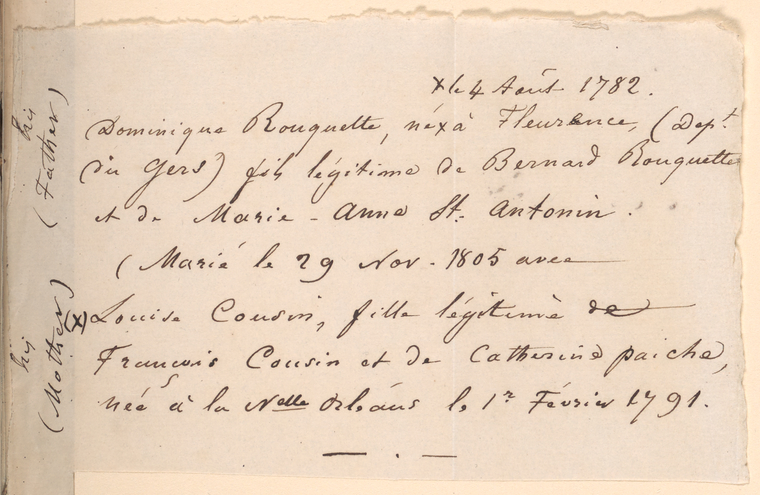 x le 4 Août 1782.
Dominique Rouquette, né x à Fleurence, (Dep.t
du Gers) fils légitime de Bernard Rouquette
et de Marie-Anne St. Antonin.
(Marié le 29 Nov. 1805 avec
(x) Louise Cousin, fille légitime de
François Cousin et de Catherine Paiche,
née à la Nelle Orléans le 1r Février 1791.
his
(Father)
his
(Mother)